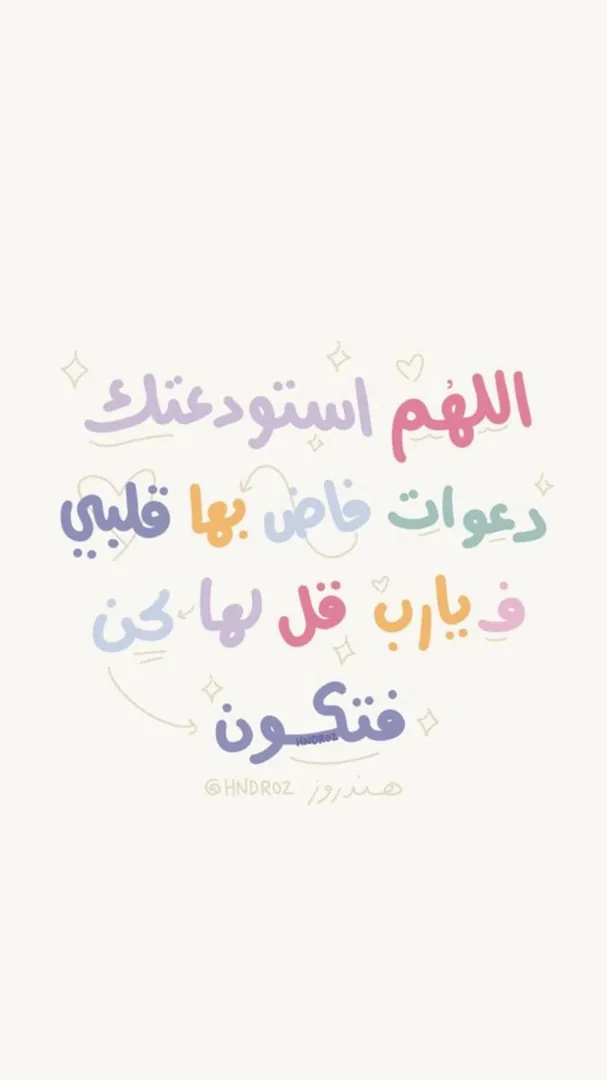 اللهُم استودعتك
دعوات فاض بها قلبي
ف يارب قل لها كن
فتكون
HNDROZ
@HNDROZ هندروز